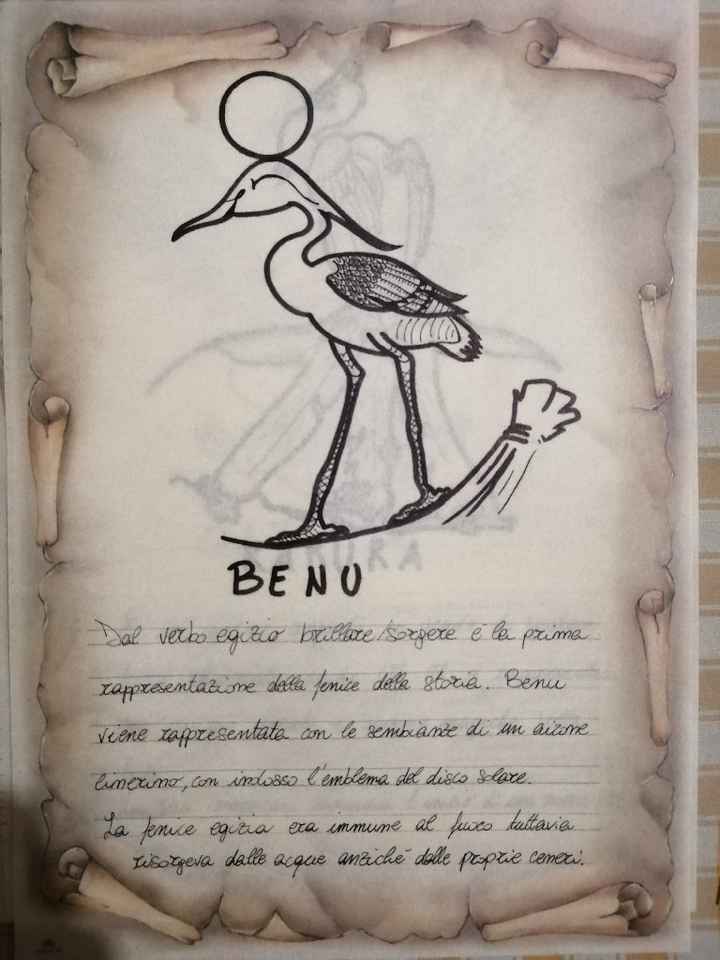 BENU
Dal verbo egizio brillare/sorgere è la prima
rappresentazione della fenice della storia. Benu
viene rappresentata con le sembianze di un airone
cinerino, con indosso l'emblema del disco solare.
La fenice egizia era immune al fuoco tuttavia
risorgeva dalle acque anziché dalle proprie ceneri.